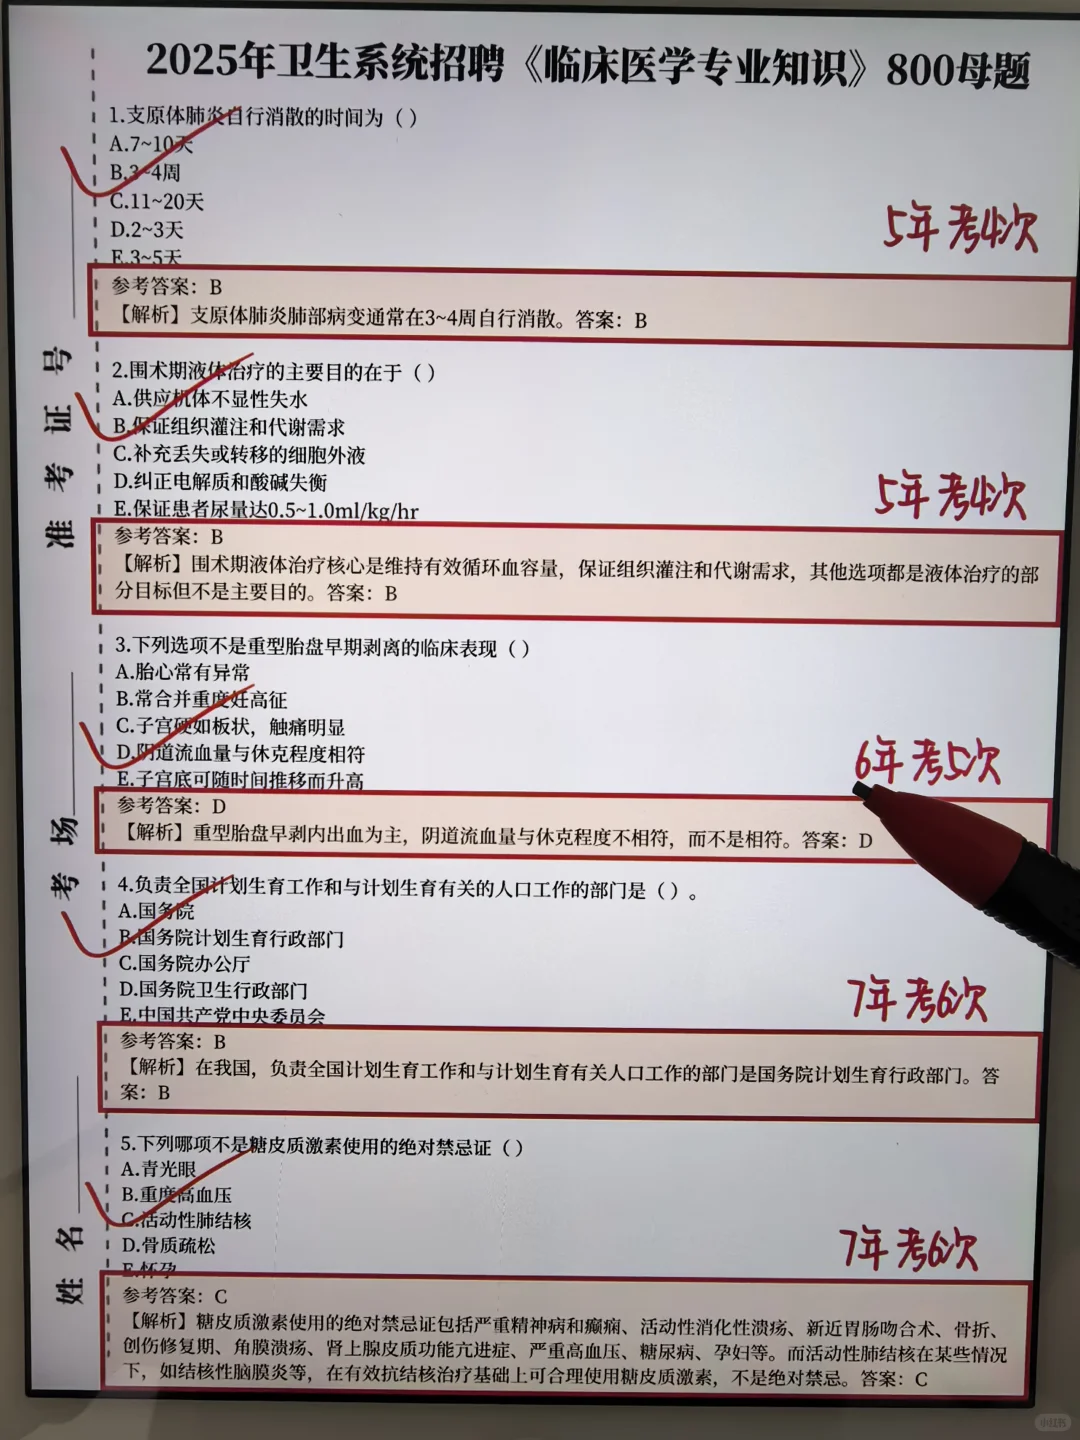 2025年卫生系统招聘《临床医学专业知识》800母题
1.支原体肺炎自行消散的时间为（）
A.7~10天
B.3~4周
C.11~20天
D.2~3天
E.3~5天
5年考4次
参考答案：B
【解析】支原体肺炎肺部病变通常在3~4周自行消散。答案：B
2.围术期液体治疗的主要目的在于（）
A.供应机体不显性失水
B.保证组织灌注和代谢需求
C.补充丢失或转移的细胞外液
D.纠正电解质和酸碱失衡
E.保证患者尿量达0.5~1.0ml/kg/hr
5年考4次
参考答案：B
【解析】围术期液体治疗核心是维持有效循环血容量，保证组织灌注和代谢需求，其他选项都是液体治疗的部
分目标但不是主要目的。答案：B
3.下列选项不是重型胎盘早期剥离的临床表现（）
A.胎心常有异常
B.常合并重度妊高征
C.子宫硬如板状，触痛明显
D.阴道流血量与休克程度相符
E.子宫底可随时间推移而升高
6年考5次
参考答案：D
【解析】重型胎盘早剥内出血为主，阴道流血量与休克程度不相符，而不是相符。答案：D
4.负责全国计划生育工作和与计划生育有关的人口工作的部门是（）。
A.国务院
B.国务院计划生育行政部门
C.国务院办公厅
D.国务院卫生行政部门
E.中国共产党中央委员会
7年考6次
参考答案：B
【解析】在我国，负责全国计划生育工作和与计划生育有关人口工作的部门是国务院计划生育行政部门。答
案：B
5.下列哪项不是糖皮质激素使用的绝对禁忌证（）
A.青光眼
B.重度高血压
C.活动性肺结核
D.骨质疏松
E.怀孕
7年考6次
参考答案：C
【解析】糖皮质激素使用的绝对禁忌证包括严重精神病和癫痫、活动性消化性溃疡、新近胃肠吻合术、骨折、
创伤修复期、角膜溃疡、肾上腺皮质功能亢进症、严重高血压、糖尿病、孕妇等。而活动性肺结核在某些情况
下，如结核性脑膜炎等，在有效抗结核治疗基础上可合理使用糖皮质激素，不是绝对禁忌。答案：C
姓名
考场
准考证号
小红书